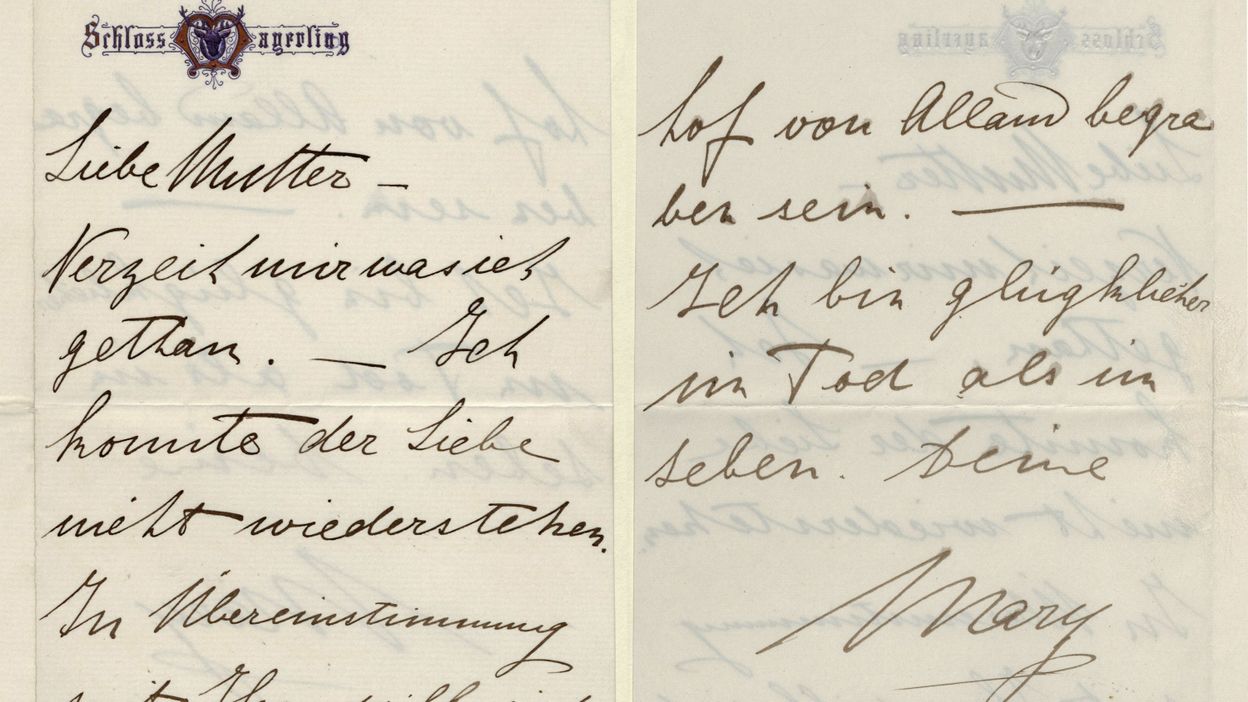 Schloss Mayerling
Liebe Mutter —
Verzeih mir was ich
gethan. — Ich
konnte der Liebe
nicht wiederstehen.
In Übereinstimmung
mit Ihm will ich
hof von Alland begra
ben sein. —
Ich bin glügklicher
im Tod als im
Leben. Deine
Mary